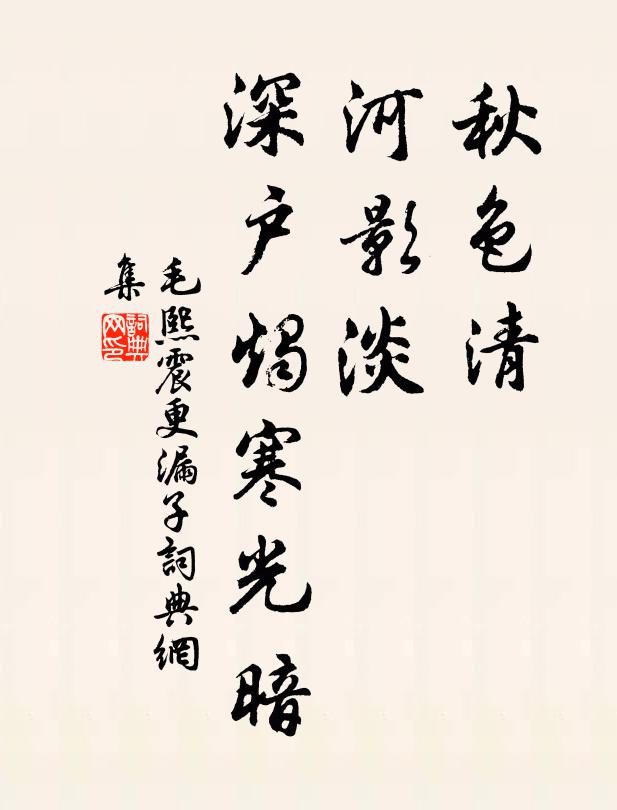 秋色清
河影淡
深户烛寒光暗
毛熙震更漏子詞典網
集
詞典
网印